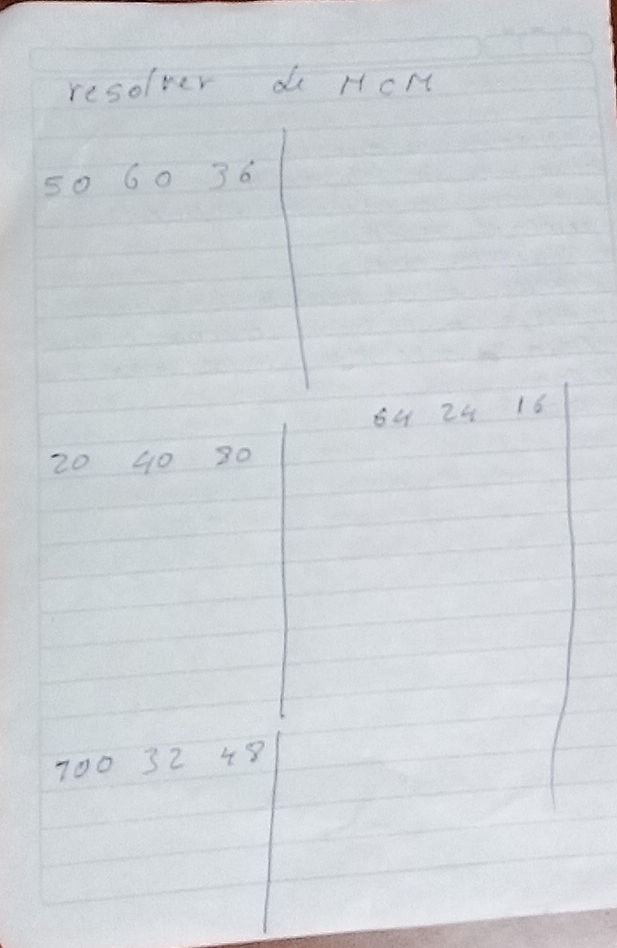 resolver de MCM
50 60 36
64 24 16
20 40 80
100 32 48